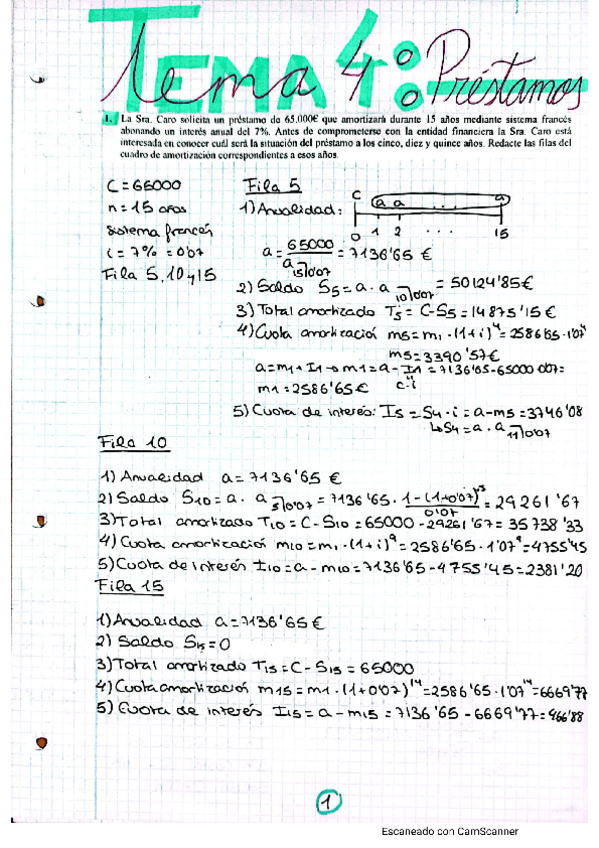 Tema 4: Préstamos
1. La Sra. Caro solicita un préstamo de 65.000€ que amortizará durante 15 años mediante sistema francés
abonando un interés anual del 7%. Antes de comprometerse con la entidad financiera la Sra. Caro está
interesada en conocer cuál será la situación del préstamo a los cinco, diez y quince años. Redacte las filas del
cuadro de amortización correspondientes a esos años.
C = 65000
n = 15 años
sistema francés
i = 7% = 0'07
Fila 5, 10 y 15
Fila 5
1) Anualidad:
C a a a
0 1 2 ... 15
a = 65000 / a 15]0'07 = 7136'65 €
2) Saldo S5 = a · a 10]0'07 = 50124'85€
3) Total amortizado T5 = C - S5 = 14875'15 €
4) Cuota amortización m5 = m1 · (1+i)^4 = 2586'65 · 1'07^4
m5 = 3390'57€
a = m1 + I1 → m1 = a - I1 = 7136'65 - 65000 · 0'07 =
c·i
m1 = 2586'65 €
5) Cuota de interés: I5 = S4 · i = a - m5 = 3746'08
↳ S4 = a · a 11]0'07
Fila 10
1) Anualidad a = 7136'65 €
2) Saldo S10 = a · a 5]0'07 = 7136'65 · 1 - (1+0'07)^-5 / 0'07 = 29261'67
3) Total amortizado T10 = C - S10 = 65000 - 29261'67 = 35738'33
4) Cuota amortización m10 = m1 · (1+i)^9 = 2586'65 · 1'07^9 = 4755'45
5) Cuota de interés I10 = a - m10 = 7136'65 - 4755'45 = 2381'20
Fila 15
1) Anualidad a = 7136'65 €
2) Saldo S15 = 0
3) Total amortizado T15 = C - S15 = 65000
4) Cuota amortización m15 = m1 · (1+0'07)^14 = 2586'65 · 1'07^14 = 6669'77
5) Cuota de interés I15 = a - m15 = 7136'65 - 6669'77 = 466'88
1
Escaneado con CamScanner